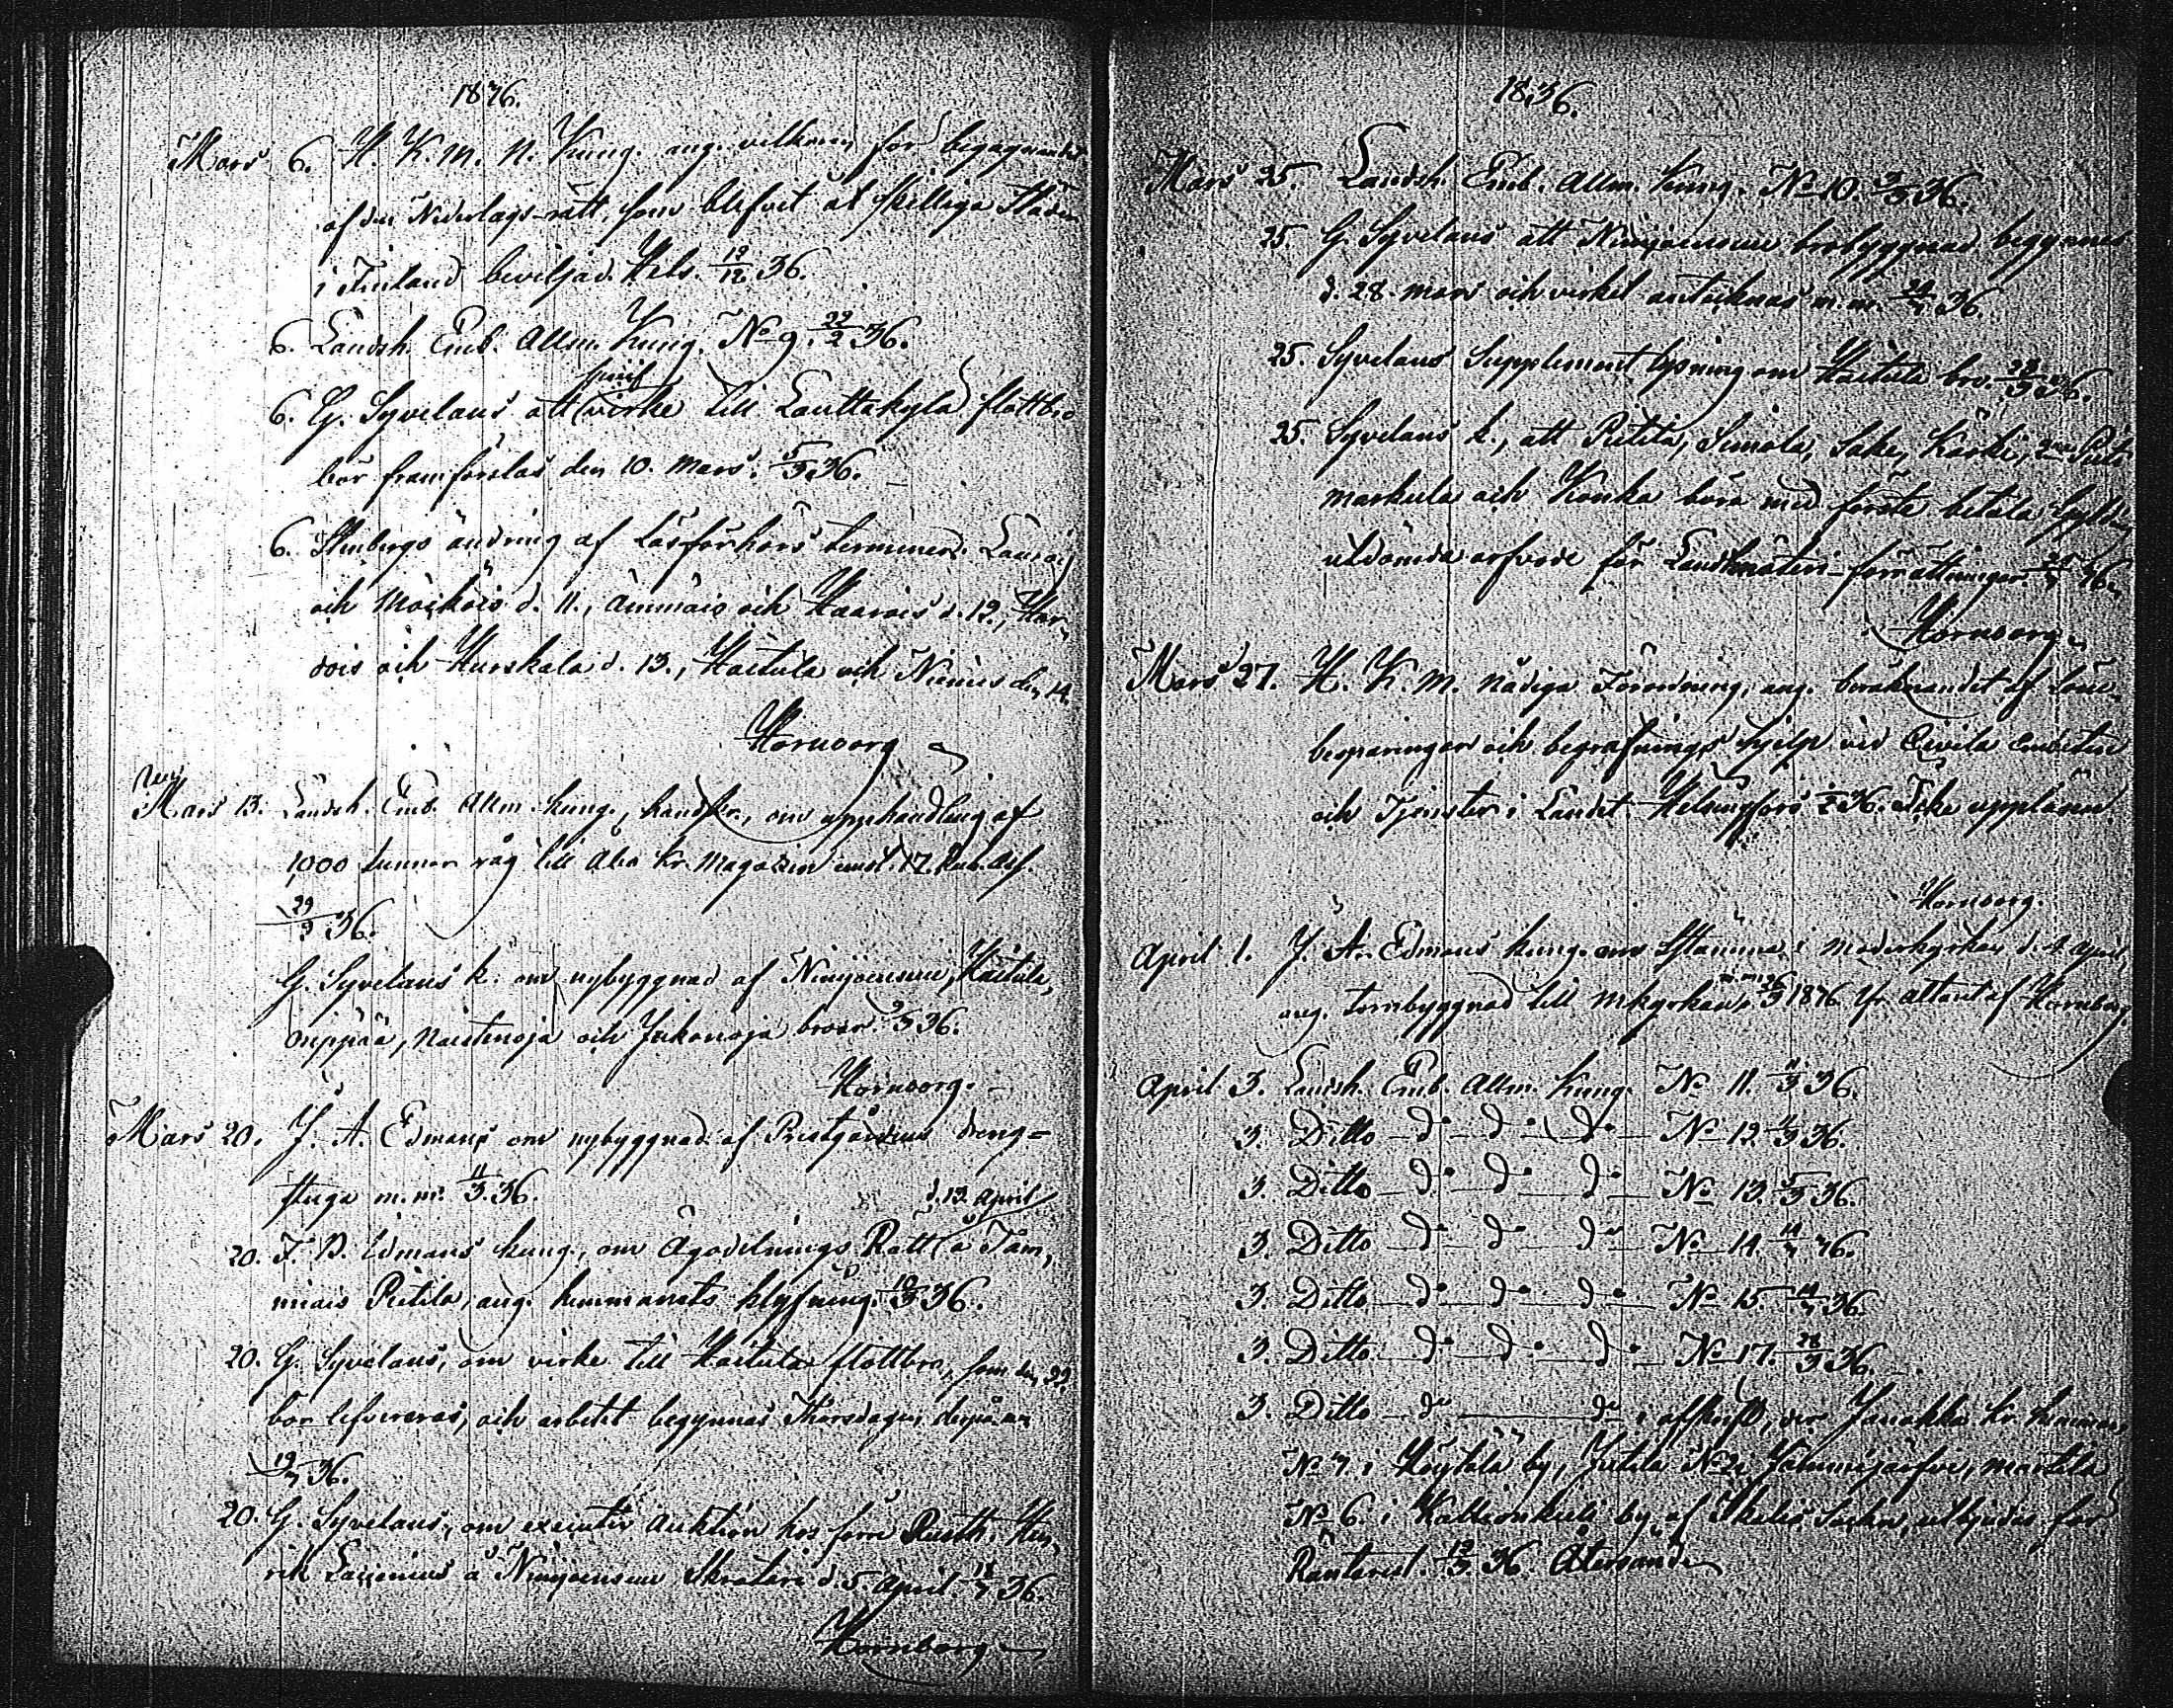 1836.
Mars 6. H. K. M. N. Kung. ang. vilkoren för begagnandet
af den Nederlags-rätt, som blifvit åt skilliga Städer
i Finland beviljad. Hels. 12/12 36.
6. Landsh. Emb. Allm. Kung. No 9. 22/2 36.
6. G. Syvelaus att virke till Lauttakylä flottbro
bör framförslas den 10. Mars. 5/3 36.
6. Stenbergs ändring af Läsförhörs terminer.
och d. 11., Ämmäis och Haarois d. 12., Har-
dois och Hurskala d. 13., Haitula och Niemis den 14.
Hornborg
Mars 13. Landsh. Emb. Allm. kung., handskr., om upphandling af
1,000 tunnor råg till Åbo Kr. Magazin emot 17. Rub. Ass.
29/3 36.
G. Syvelaus k. om nybyggnad af Ninijoensuu, Haitula,
Onippää, Naistenoja och Jukonoja broar. 9/3 36.
Hornborg.
Mars 20. J. A. Edmans om nybyggnad af Prestgårdens dreng-
stuga m. m. 11/3 36.
d. 13. April
20. F. D. Edmans kung., om Ägodelnings Rätt å Täm-
miais Pietila, ang. hemmanets klyfning. 10/3 36.
20. G. Syvelaus, om virke till Haitula flottbro, som den 22.
bör lefvereras, och arbetet begynnas Thorsdagen derpå
19/3 36.
20. G. Syvelaus, om executiv Auktion hos förre Rusth. Hen-
rik å Ninijoensuu Skräteri d. 5. April 18/3 36.
Hornborg
1836.
Mars 25. Landsh. Emb. Allm. Kung. No 10. 3/3 36.
25. G. Syvelaus att Ninijoensuu brobyggnad begynnes
d. 28. Mars och virket antecknas m. m. 24/3 36.
25. Syvelaus Supplement lysning om Haitula bro. 23/3 36.
25. Syvelaus k., att Pietila, Simola, Sake, Karki,
Markula och Konka böra med förste betala
utdömda arfvode för Landtmäteri-förrättningar. 36.
Hornborg
Mars 27. H. K. M. Nådiga Förordning, ang. beräknandet af Löne-
besparingar och begrafnings hjelp vid Civila Embeten
och Tjenster i Landet. Helsingfors 36. Icke uppläsen.
Hornborg.
April 1. J. A. Edmans kung. om Sstämma i Moderkyrkan d. 4 April,
m. m. 26
ang. tornbyggnad till Mkyrkan, 3 1836. Yr. attent af Hornborg.
April 3. Landsh. Emb. Allm. Kung. No 11. 4/3 36.
3. Ditto do do do No 12. 4/3 36.
3. Ditto do do do No 13. 5/3 36.
3. Ditto do do do No 14. 11/3 36.
3. Ditto do do do No 15. 14/3 36.
3. Ditto do do do No 17. 28/3 36.
3. Ditto do do i afskrift, der Janakka Kr. hemman,
No 7. i Höytälä by, Jutila No 2 , Martila
No 6. i by, af Socken, utbjudes för
Ränterest. 12/3 36. Återsänd